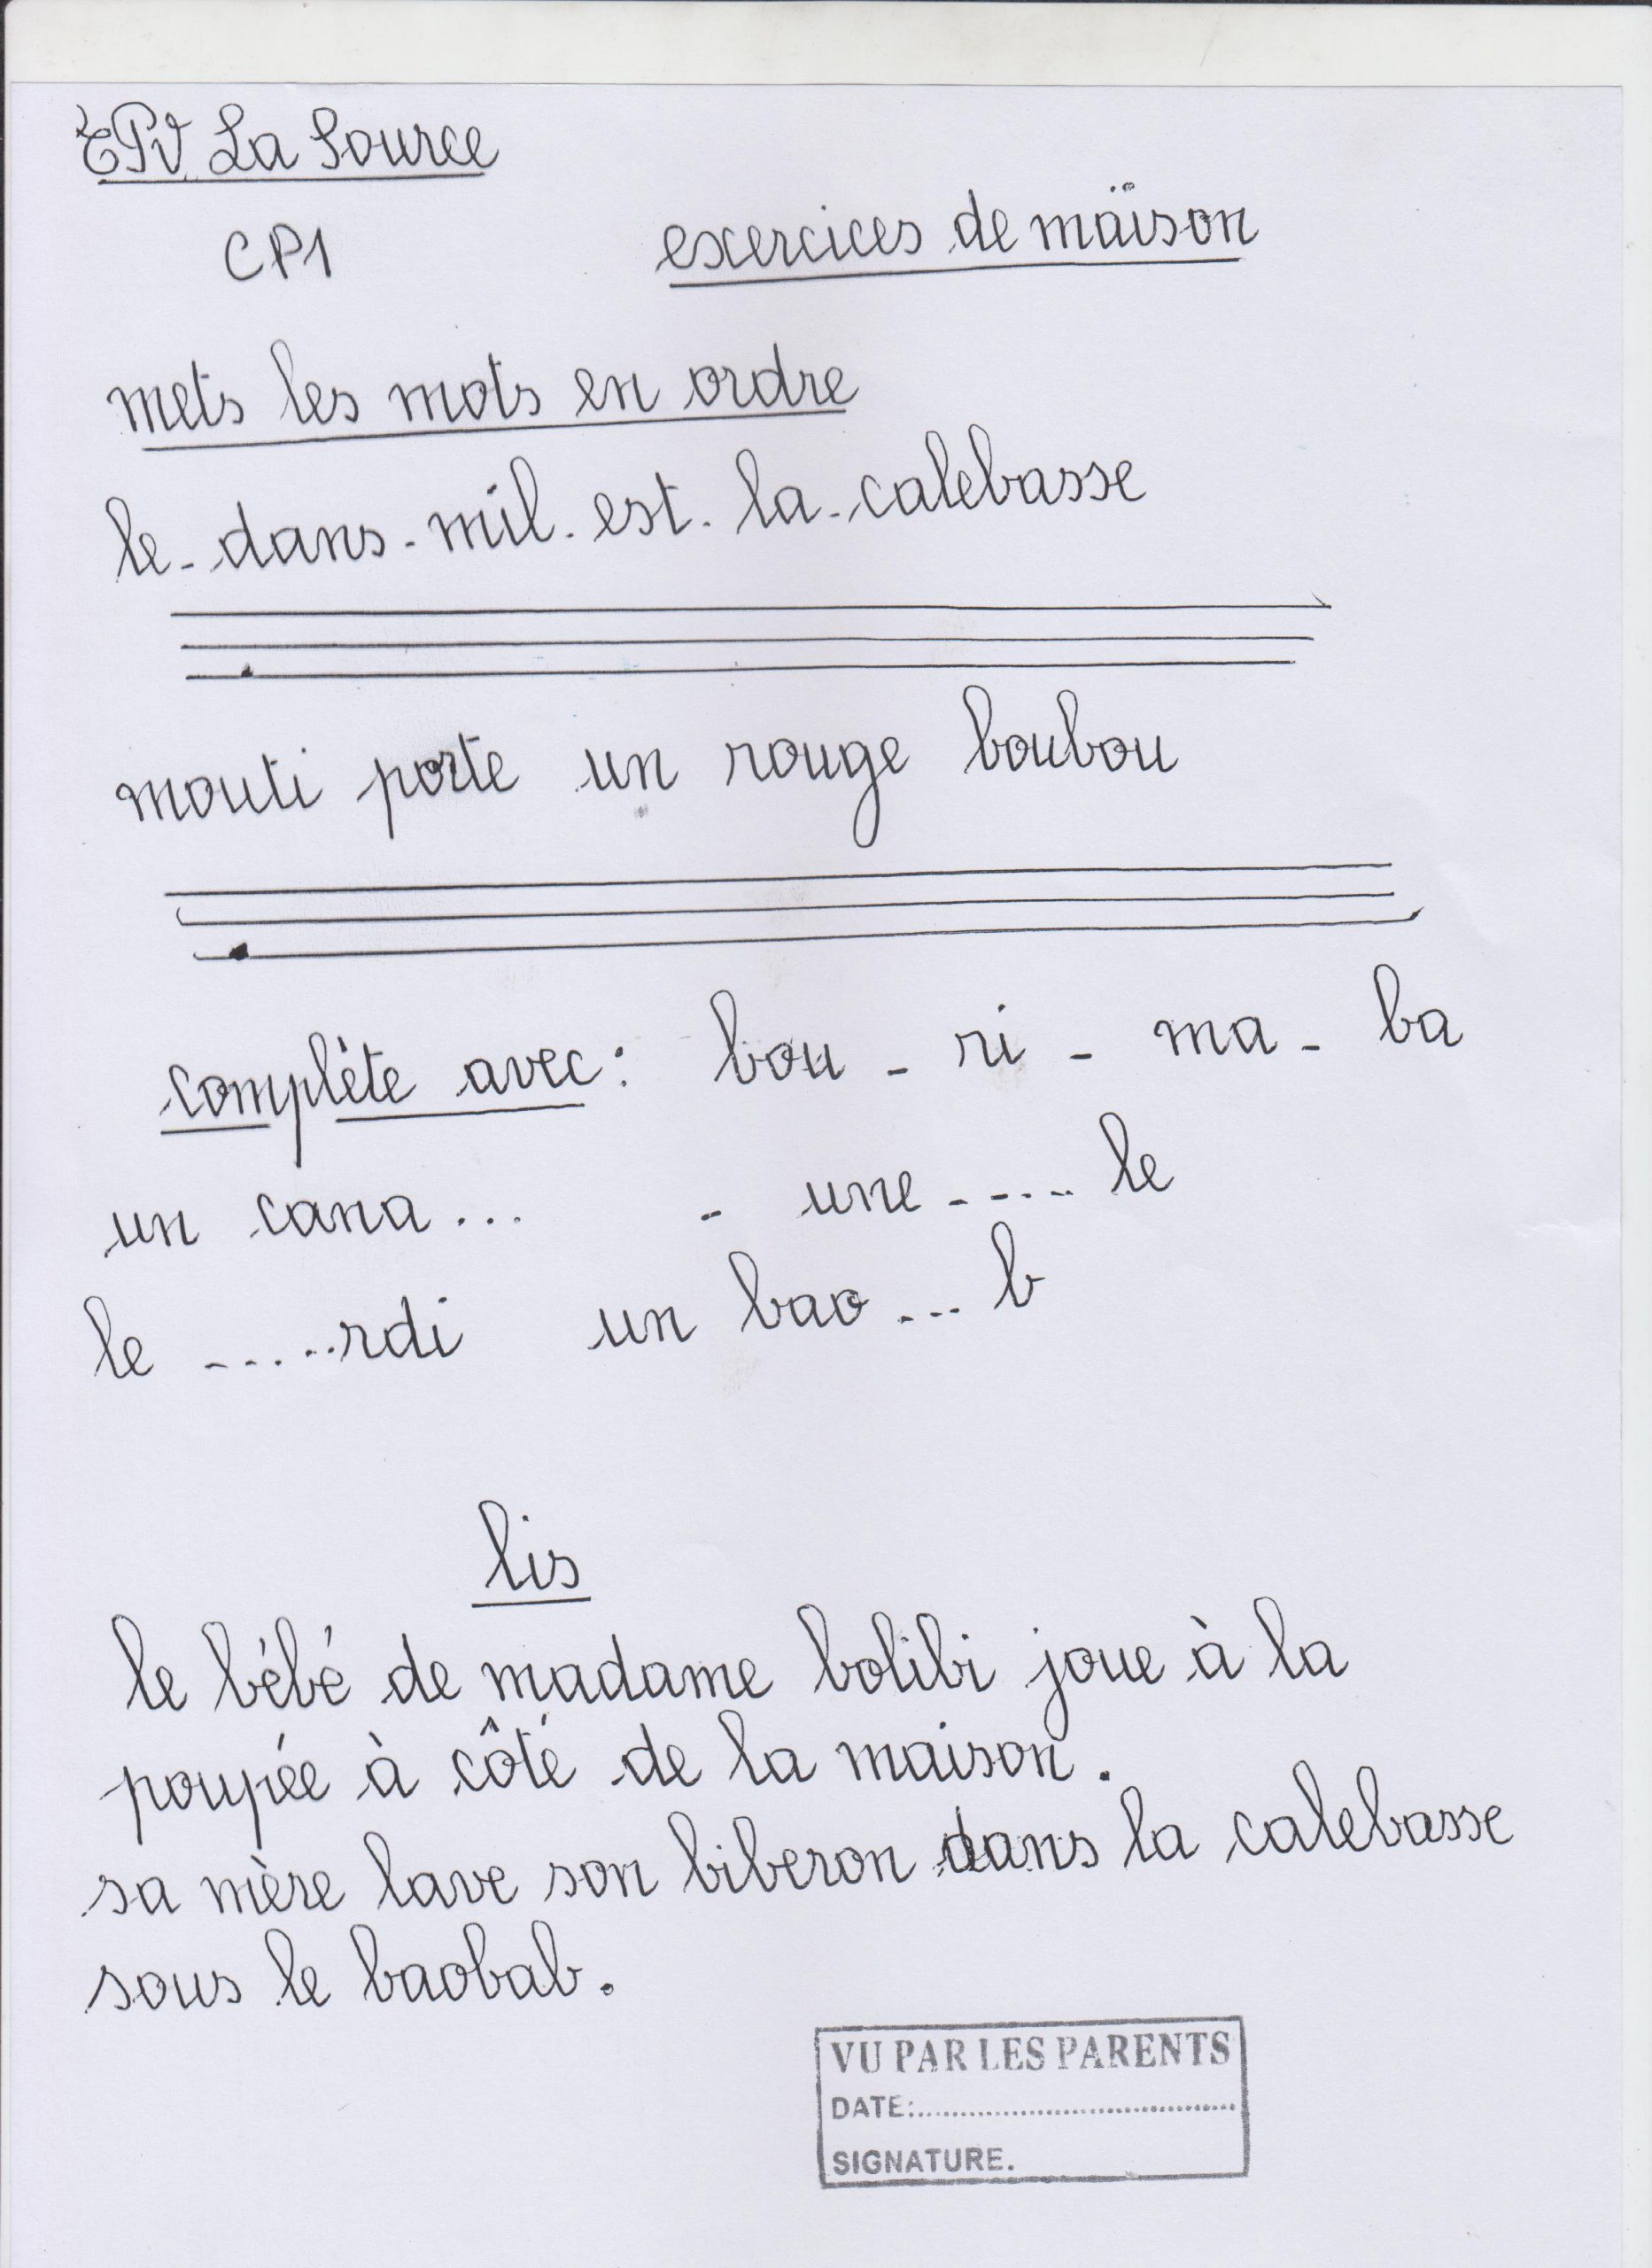 EPV La Source
CP1 exercices de maïson
mets les mots en ordre
le - dans - mil - est - la - calebasse
mouti porte un rouge boubou
complète avec : bou - ri - ma - ba
un cana... - une ..... le
le .....rdi un bao ... b
lis
le bébé de madame bolibi joue à la
poupée à côté de la maison.
sa mère lave son biberon dans la calebasse
sous le baobab.
VU PAR LES PARENTS
DATE:..........................................
SIGNATURE.